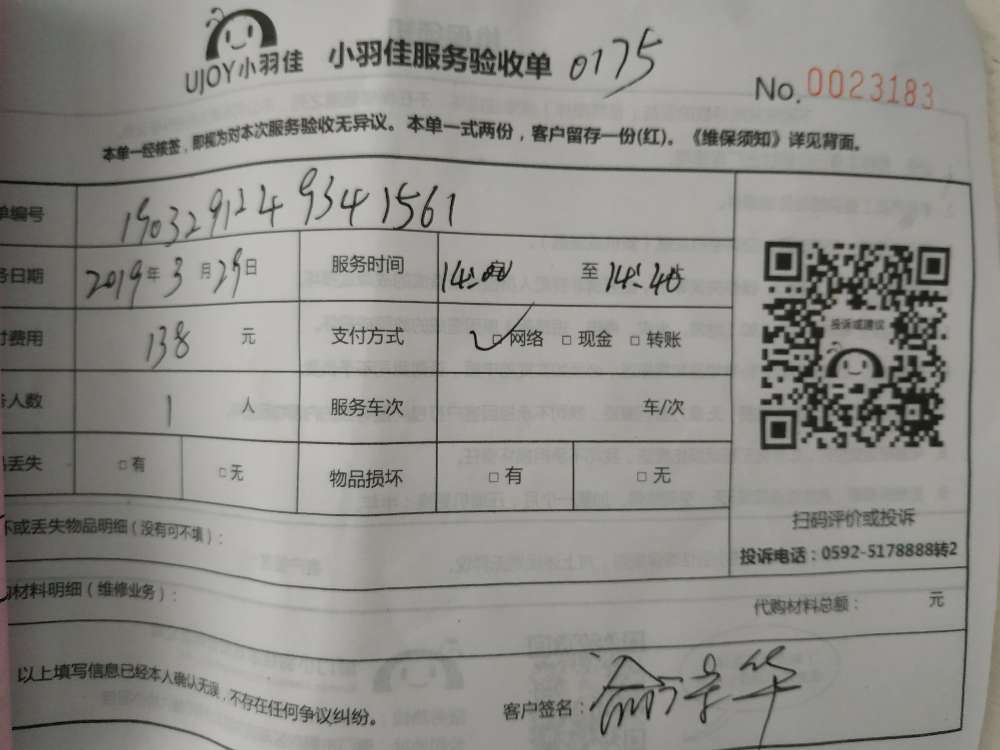 UJOY小羽佳 小羽佳服务验收单 0175
No. 0023183
本单一经核签，即视为对本次服务验收无异议。本单一式两份，客户留存一份(红)。《维保须知》详见背面。
单编号 190329124 9341561
务日期 2019年3月29日 服务时间 至 14:40
付费用 138 元 支付方式 ✓□网络 □现金 □转账
务人数 1 人 服务车次 车/次
品丢失 □有 □无 物品损坏 □有 □无
投诉或建议
扫码评价或投诉
投诉电话：0592-5178888转2
坏或丢失物品明细（没有可不填）：
购材料明细（维修业务）： 代购材料总额： 元
以上填写信息已经本人确认无误，不存在任何争议纠纷。
客户签名：